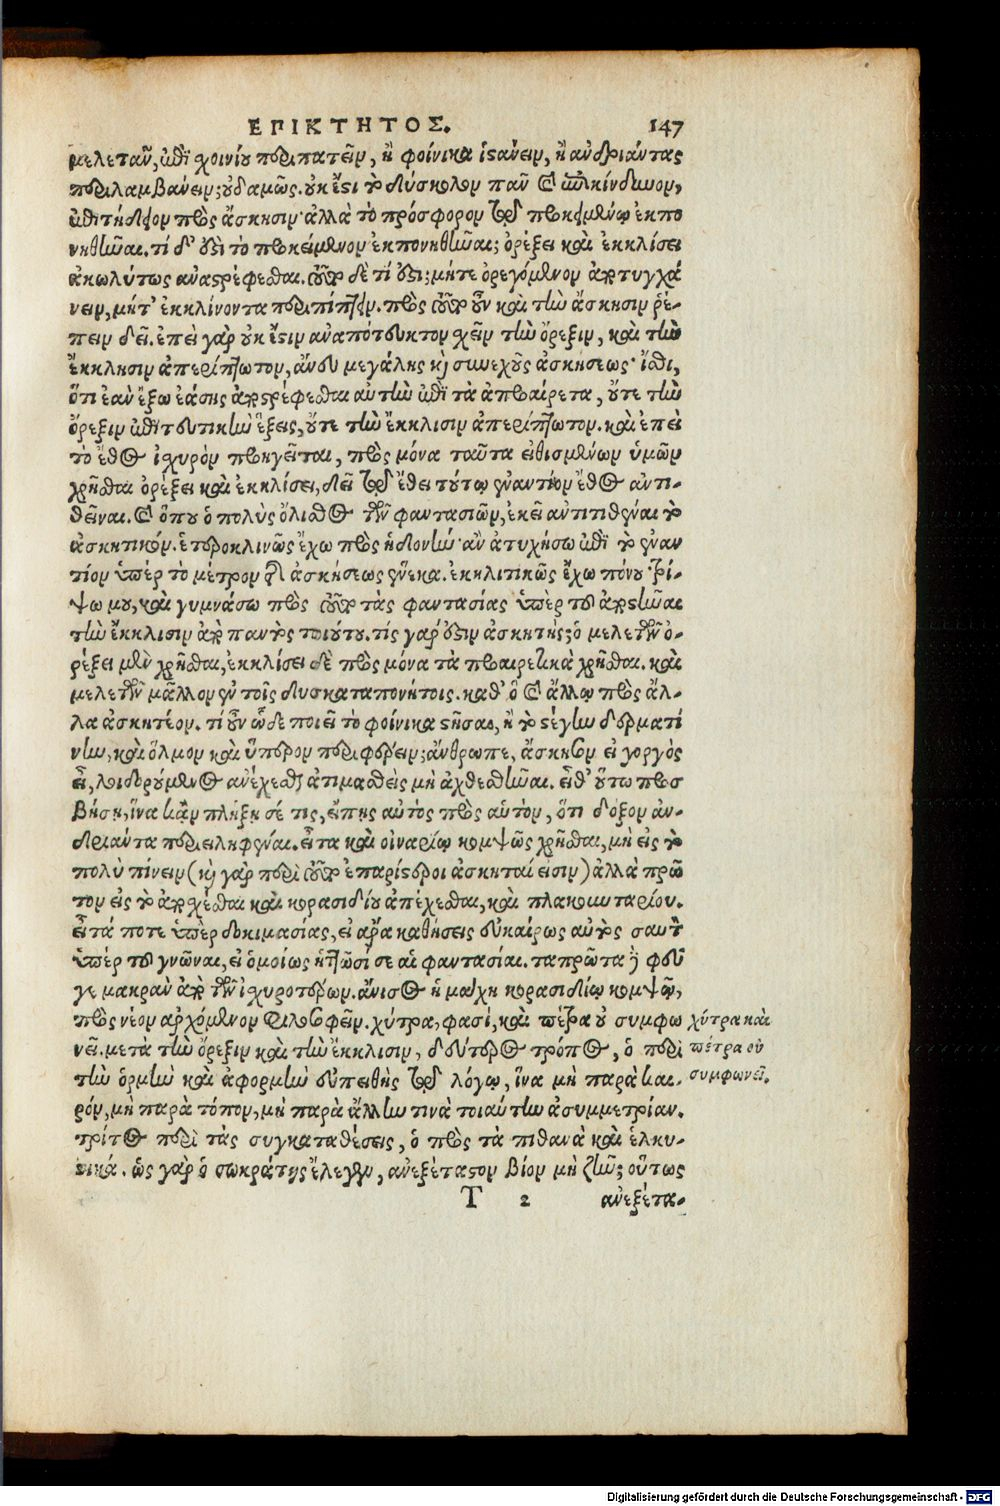 ΕΠΙΚΤΗΤΟΣ. 147
μελετᾶν, ἐπὶ χοινίου περιπατεῖν, ἢ φοίνικα ἱστάνειν, ἢ ἀνδριάντας
περιλαμβάνειν; οὐδαμῶς. οὐκ ἔστι τὸ δύσκολον πᾶν καὶ ἐπικίνδυνον,
ἐπιτήδειον πρὸς ἄσκησιν· ἀλλὰ τὸ πρόσφορον τῷ προκειμένῳ ἐκπο
νηθῆναι. τί δ' ἐστὶ τὸ προκείμενον ἐκπονηθῆναι; ὀρέξει καὶ ἐκκλίσει
ἀκωλύτως ἀναστρέφεσθαι. τοῦτο δὲ τί ἐστι; μήτε ὀρεγόμενον ἀποτυγχά
νειν, μήτ' ἐκκλίνοντα περιπίπτειν. πρὸς τοῦτο οὖν καὶ τὴν ἄσκησιν ῥέ-
πειν δεῖ. ἐπεὶ γὰρ οὐκ ἔστιν ἀναπότευκτον χεῖν τὴν ὄρεξιν, καὶ τὴν
ἔκκλησιν ἀπερίπτωτον, ἄνευ μεγάλης καὶ συνεχοῦς ἀσκήσεως· ἴσθι,
ὅτι ἐὰν ἔξω ἐάσῃς ἀποστρέφεσθαι αὐτὴν ἐπὶ τὰ ἀπροαίρετα, οὔτε τὴν
ὄρεξιν ἐπιτευτικὴν ἕξεις, οὔτε τὴν ἔκκλισιν ἀπερίπτωτον. καὶ ἐπεὶ
τὸ ἔθος ἰχυρὸν προηγεῖται, πρὸς μόνα ταῦτα εἰθισμένων ὑμῶν
χρῆσθαι ὀρέξει καὶ ἐκκλίσει, δεῖ τῷ ἔθει τούτῳ ἐναντίον ἔθος ἀντι-
θεῖναι. καὶ ὅπου ὁ πολὺς ὄλισθος τῶν φαντασιῶν, ἐκεῖ ἀντιτιθέναι τὸ
ἀσκητικόν. ἑτεροκλινῶς ἔχω πρὸς ἡδονήν· ἀνατυχήσω ἐπὶ τὸ ἐναν
τίον ὑπὲρ τὸ μέτρον τῆς ἀσκήσεως ἕνεκα. ἐκκλιτικῶς ἔχω πόνου· τρί-
ψω μου, καὶ γυμνάσω πρὸς τοῦτο τὰς φαντασίας ὑπὲρ τοῦ ἀποστῆναι
τὴν ἔκκλισιν ἀπὸ παντὸς τοιούτου. τίς γάρ ἐστιν ἀσκητής; ὁ μελετῶν ὀ-
ρέξει μὲν χρῆσθαι, ἐκκλίσει δὲ πρὸς μόνα τὰ προαιρετικὰ χρῆσθαι. καὶ
μελετῶν μᾶλλον ἐν τοῖς δυσκαταπονήτοις. καθ' ὃ καὶ ἄλλῳ πρὸς ἄλ-
λα ἀσκητέον. τί οὖν ὧδε ποιεῖ τὸ φοίνικα στῆσαι, ἢ τὸ στέγην δερματί
νην, καὶ ὅλμον καὶ ὕπερον περιφέρειν; ἄνθρωπε, ἄσκησον εἰ γοργὸς
εἶ, λοιδορούμενος ἀνέχεσθαι ἀτιμασθεὶς μὴ ἀχθεσθῆναι. εἶθ' οὕτω προσ
βήσῃ, ἵνα κἂν πλήξῃ σέ τις, εἴπῃς αὐτὸς πρὸς αὑτὸν, ὅτι δόξον ἀν-
δριάντα περιειληφέναι. εἶτα καὶ οἰναρίῳ κομψῶς χρῆσθαι, μὴ εἰς τὸ
πολὺ πίνειν (καὶ γὰρ περὶ τοῦτο ἐπαρίστεροι ἀσκηταί εἰσιν) ἀλλὰ πρῶ
τον εἰς τὸ ἀποσχέσθαι καὶ κορασιδίου ἀπέχεσθαι, καὶ πλακουνταρίου.
εἶτά ποτε ὑπὲρ δοκιμασίας, εἰ ἄρα καθήσεις εὐκαίρως αὐτὸς σαυτὸν
ὑπὲρ τοῦ γνῶναι, εἰ ὁμοίως ἡττῶσί σε αἱ φαντασίαι. ταπρῶτα δὲ φεῦ
γε μακρὰν ἀπὸ τῶν ἰχυροτέρων. ἄνισος ἡ μάχη κορασιδίῳ κομψῷ,
πρὸς νέον ἀρχόμενον φιλοσοφεῖν. χύτρα, φασί, καὶ πέτρα οὐ συμφω
νεῖ. μετὰ τὴν ὄρεξιν καὶ τὴν ἔκκλισιν, δεύτερος τρόπος, ὁ περὶ
τὴν ὁρμὴν καὶ ἀφορμὴν εὐπειθὴς τῷ λόγῳ, ἵνα μὴ παρὰ και-
ρόν, μὴ παρὰ τόπον, μὴ παρὰ ἄλλην τινὰ τοιαύτην ἀσυμμετρίαν.
τρίτος περὶ τὰς συγκαταθέσεις, ὁ πρὸς τὰ πιθανὰ καὶ ἑλκυ-
στικά. ὡς γὰρ ὁ σωκράτης ἔλεγεν, ἀνεξέταστον βίον μὴ ζῆν; οὕτως
Τ 2 ἀνεξέτα-
χύτρα καὶ
πέτρα οὐ
συμφωνεῖ.
Digitalisierung gefördert durch die Deutsche Forschungsgemeinschaft - DFG